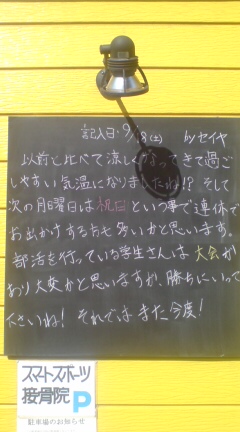 記入日・9/18(土) byセイヤ
以前と比べて涼しくなってきて過ご
しやすい気温になりましたね!? そして
次の月曜日は祝日という事で連休で
お出かけする方も多いかと思います。
部活を行っている学生さんは大会が
あり大変かと思いますが、勝ちにいって
下さいね! それでは また今度!
スマートスポーツ
接骨院 P
駐車場のお知らせ